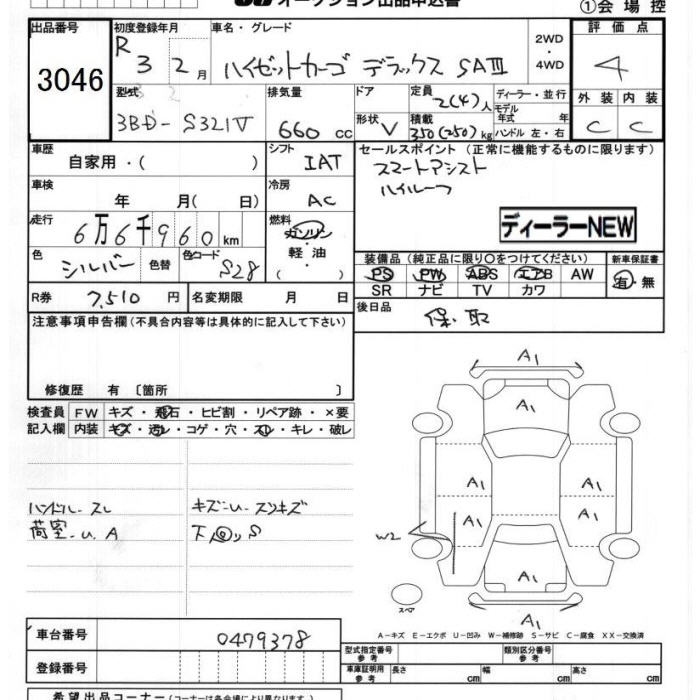 オークション出品申込書 ①会場控
出品番号 初度登録年月 車名・グレード 評価点
3046 R 3 2月 ハイゼットカーゴ デラックス SAⅢ 2WD・4WD 4
型式 排気量 ドア 定員 2(4)人 ディーラー・並行 外装 内装
3BD-S321V 660cc 形状 V 積載 350(250)kg モデル年式 年 ハンドル 左・右 C C
車歴 シフト セールスポイント(正常に機能するものに限ります)
自家用・( ) IAT スマートアシスト
車検 冷房 ハイルーフ
年 月( 日) AC
走行 燃料 ディーラーNEW
6万6千960km ガソリン・軽油・( )
色 シルバー 色替 色コード S28
装備品(純正品に限り○をつけてください) 新車保証書
PS PW ABS エアB AW 有・無
SR ナビ TV カワ
R券 7,510円 名変期限 月 日 後日品 保・取
注意事項申告欄(不具合内容等は具体的に記入して下さい)
修復歴 有 〔箇所 〕
検査員 FW キズ・飛石・ヒビ割・リペア跡・×要
記入欄 内装 キズ・汚レ・コゲ・穴・スレ・キレ・破レ
ハンドル・スレ キズ・U・スリキズ
荷室・U.A 下回リS
A1
A1
A1 A1
A1 A1
W2
A1
スペア A1
A-キズ E-エクボ U-凹み W-補修跡 S-サビ C-腐食 XX-交換済
車台番号 0479378
登録番号
型式指定番号 参考 類別区分番号 参考
車庫証明用 参考 長さ cm 幅 cm 高さ cm
希望出品コーナー(コーナーは各会場により異なります)